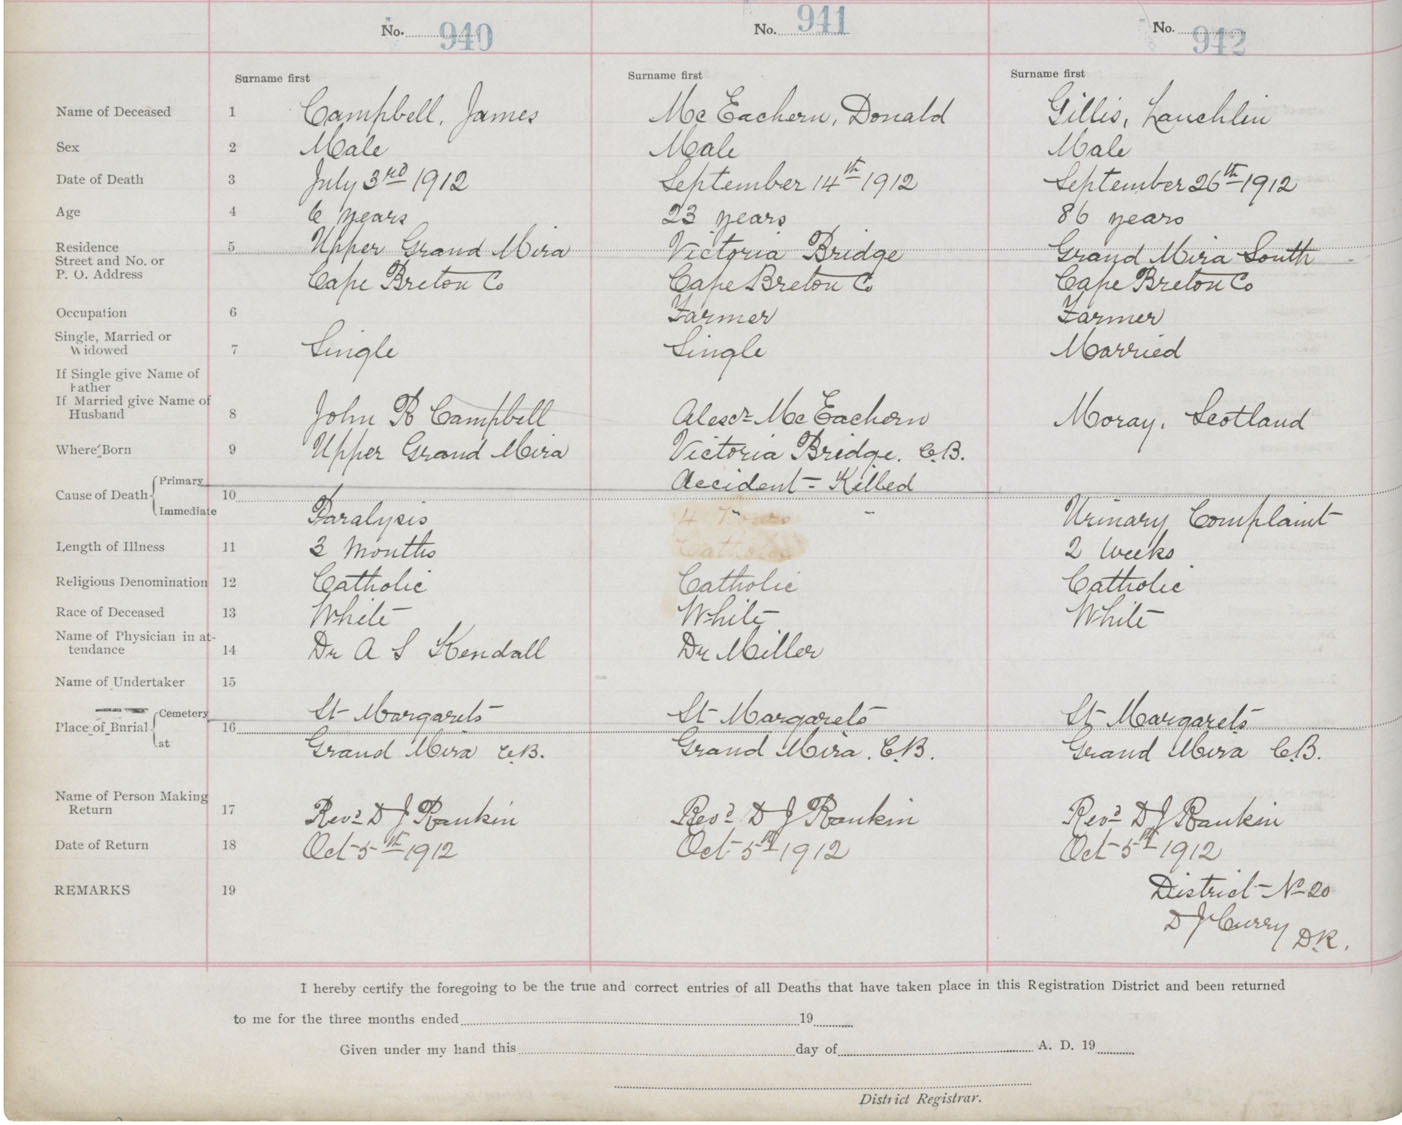 No. 940 No. 941 No. 942
Surname first Surname first Surname first
Name of Deceased 1 Campbell, James Mc Eachern, Donald Gillis, Lauchlin
Sex 2 Male Male Male
Date of Death 3 July 3rd 1912 September 14th 1912 September 26th 1912
Age 4 6 years 23 years 86 years
Residence 5 Upper Grand Mira Victoria Bridge Grand Mira South
Street and No. or
P. O. Address Cape Breton Co Cape Breton Co Cape Breton Co
Occupation 6 Farmer Farmer
Single, Married or
Widowed 7 Single Single Married
If Single give Name of
Father
If Married give Name of
Husband 8 John R Campbell Alexr Mc Eachern Moray, Scotland
Where Born 9 Upper Grand Mira Victoria Bridge. C.B.
Primary Accident - Killed
Cause of Death 10
Immediate Paralysis " - Urinary Complaint
Length of Illness 11 3 Months 2 Weeks
Religious Denomination 12 Catholic Catholic Catholic
Race of Deceased 13 White White White
Name of Physician in at-
tendance 14 Dr A S Kendall Dr Miller
Name of Undertaker 15
Cemetery St Margarets St Margarets St Margarets
Place of Burial 16
at Grand Mira C.B. Grand Mira. C.B. Grand Mira C.B.
Name of Person Making
Return 17 Revd D J Rankin Revd D J Rankin Revd D J Rankin
Date of Return 18 Oct 5th 1912 Oct 5th 1912 Oct 5th 1912
REMARKS 19 District No 20
D J Curry D.R.
I hereby certify the foregoing to be the true and correct entries of all Deaths that have taken place in this Registration District and been returned
to me for the three months ended 19
Given under my hand this day of A. D. 19
District Registrar.